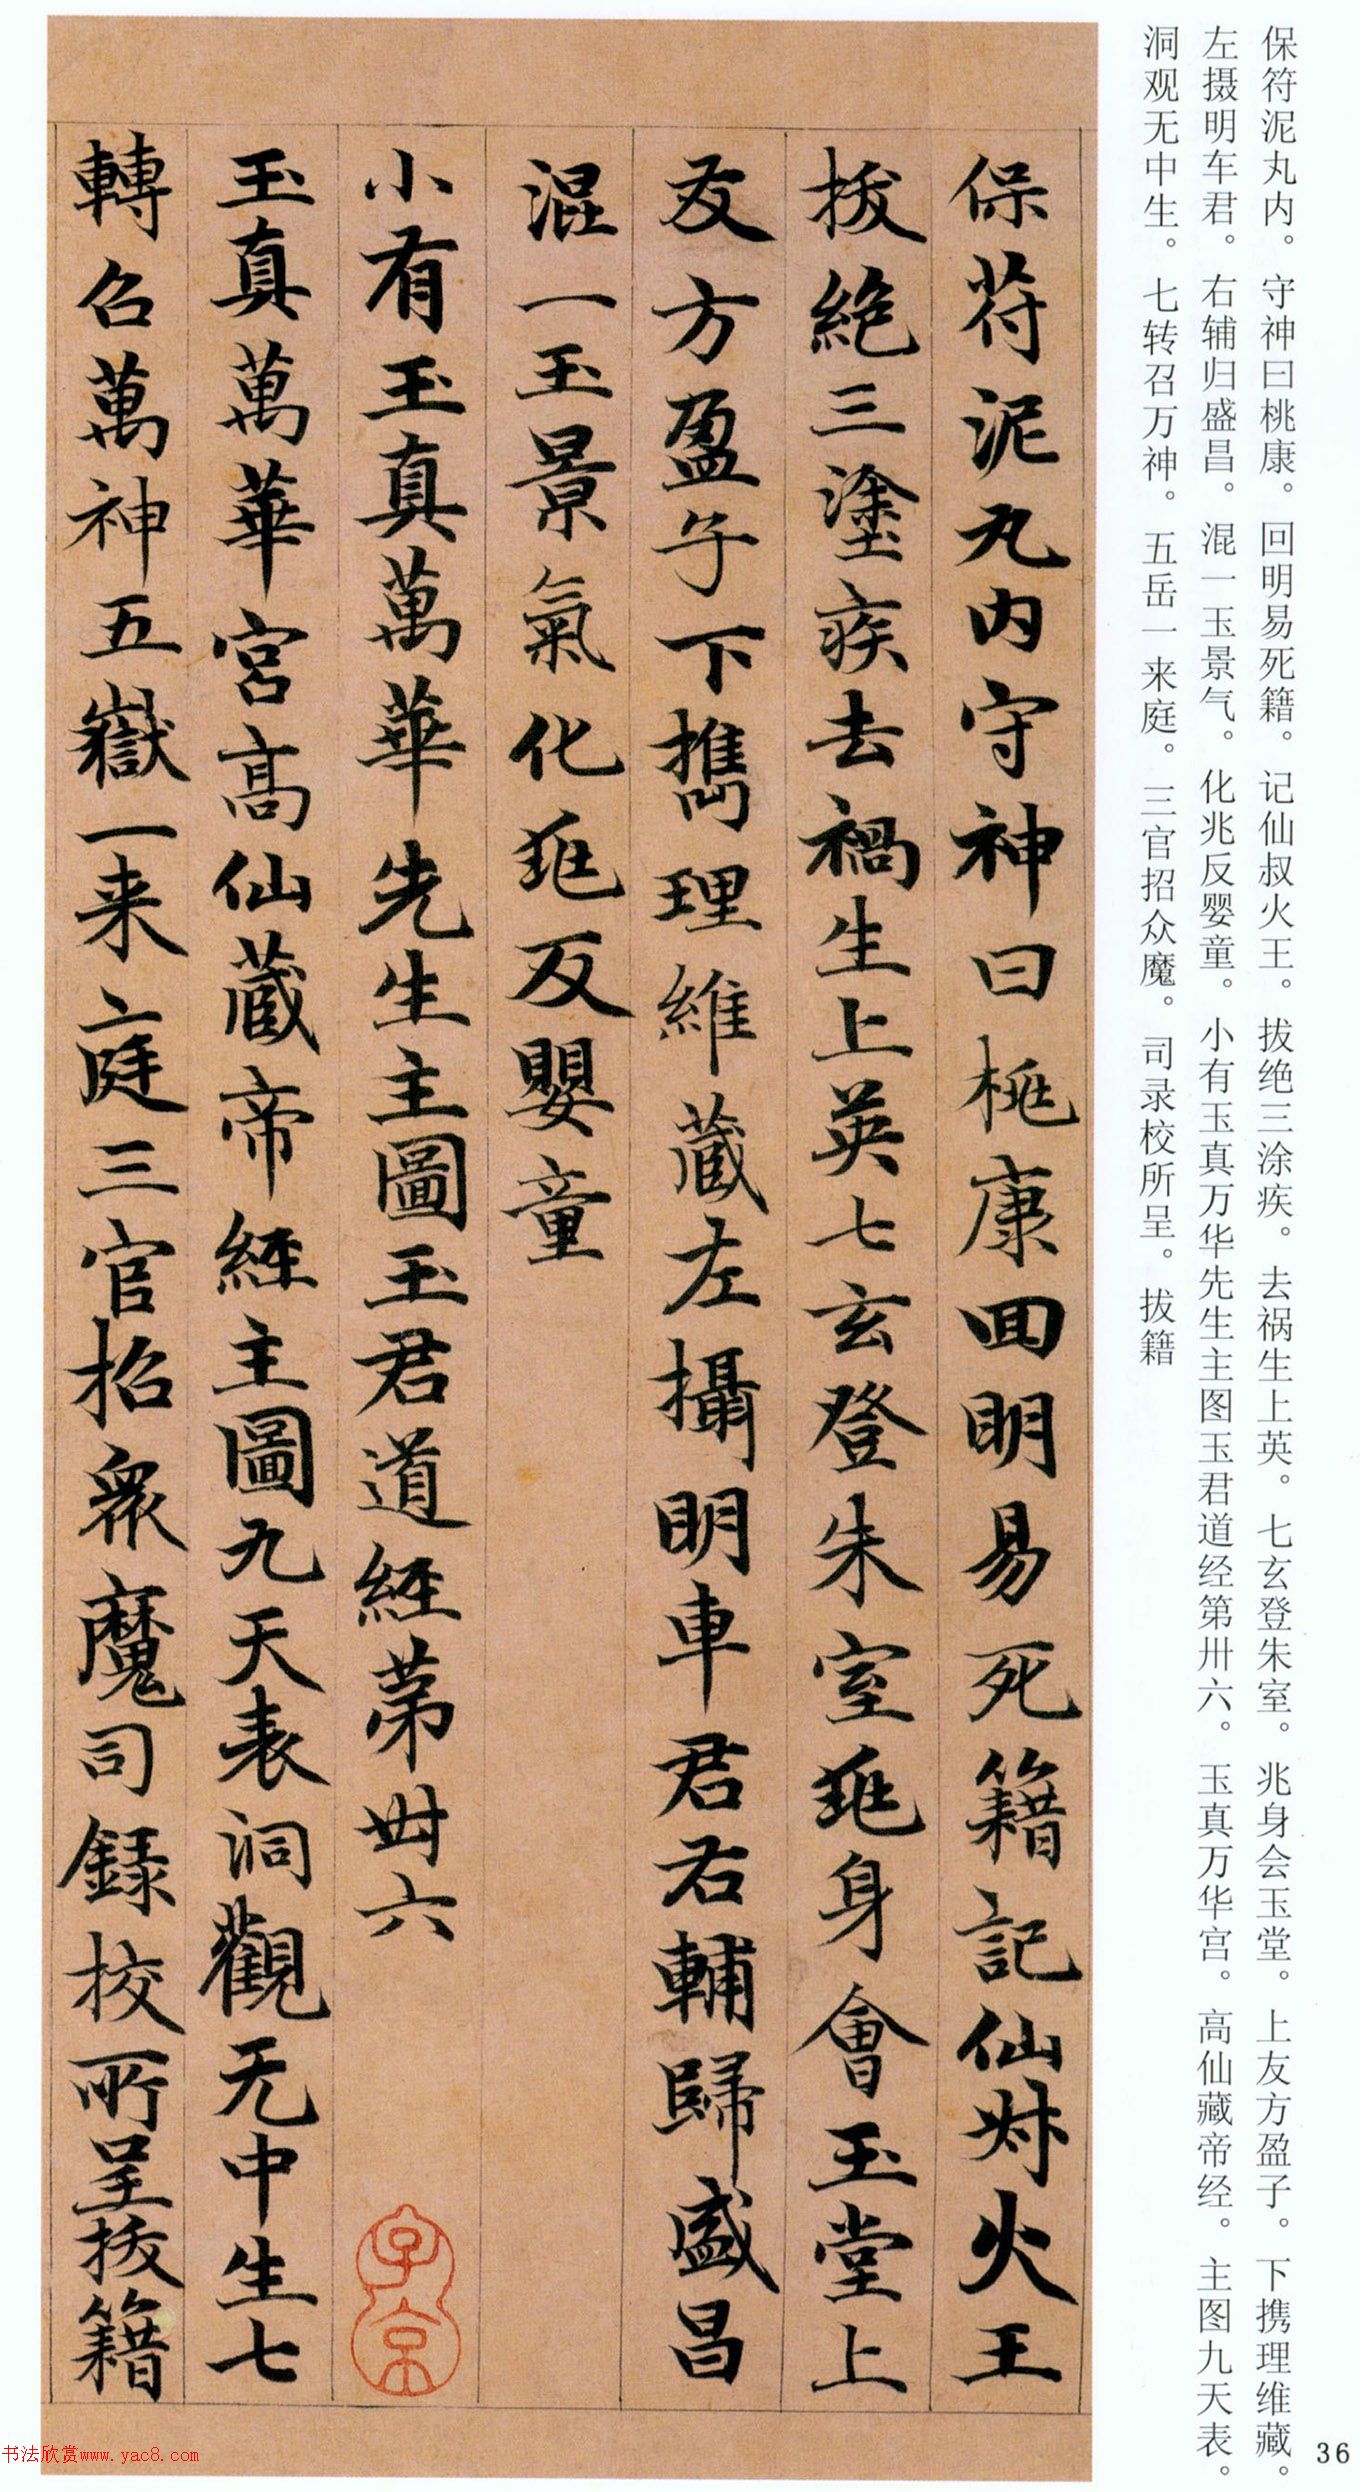 保符泥丸内。守神曰桃康。回明易死籍。记仙叔火王。拔绝三涂疾。去祸生上英。七玄登朱室。兆身会玉堂。上友方盈子。下携理维藏。
左摄明车君。右辅归盛昌。混一玉景气。化兆反婴童。小有玉真万华先生主图玉君道经第卅六。玉真万华宫。高仙藏帝经。主图九天表。
洞观无中生。七转召万神。五岳一来庭。三官招众魔。司录校所呈。拔籍
保符泥丸内守神曰桃康回明易死籍記仙叔火王
拔絶三塗疾去禍生上英七玄登朱室兆身會玉堂上
友方盈子下攜理維藏左攝明車君右輔歸盛昌
混一玉景氣化兆反嬰童
小有玉真萬華先生主圖玉君道經第卅六
玉真萬華宮高仙藏帝經主圖九天表洞觀无中生七
轉召萬神五嶽一来庭三官招衆魔司錄校所呈拔籍
子京
36
书法欣赏www.yac8.com